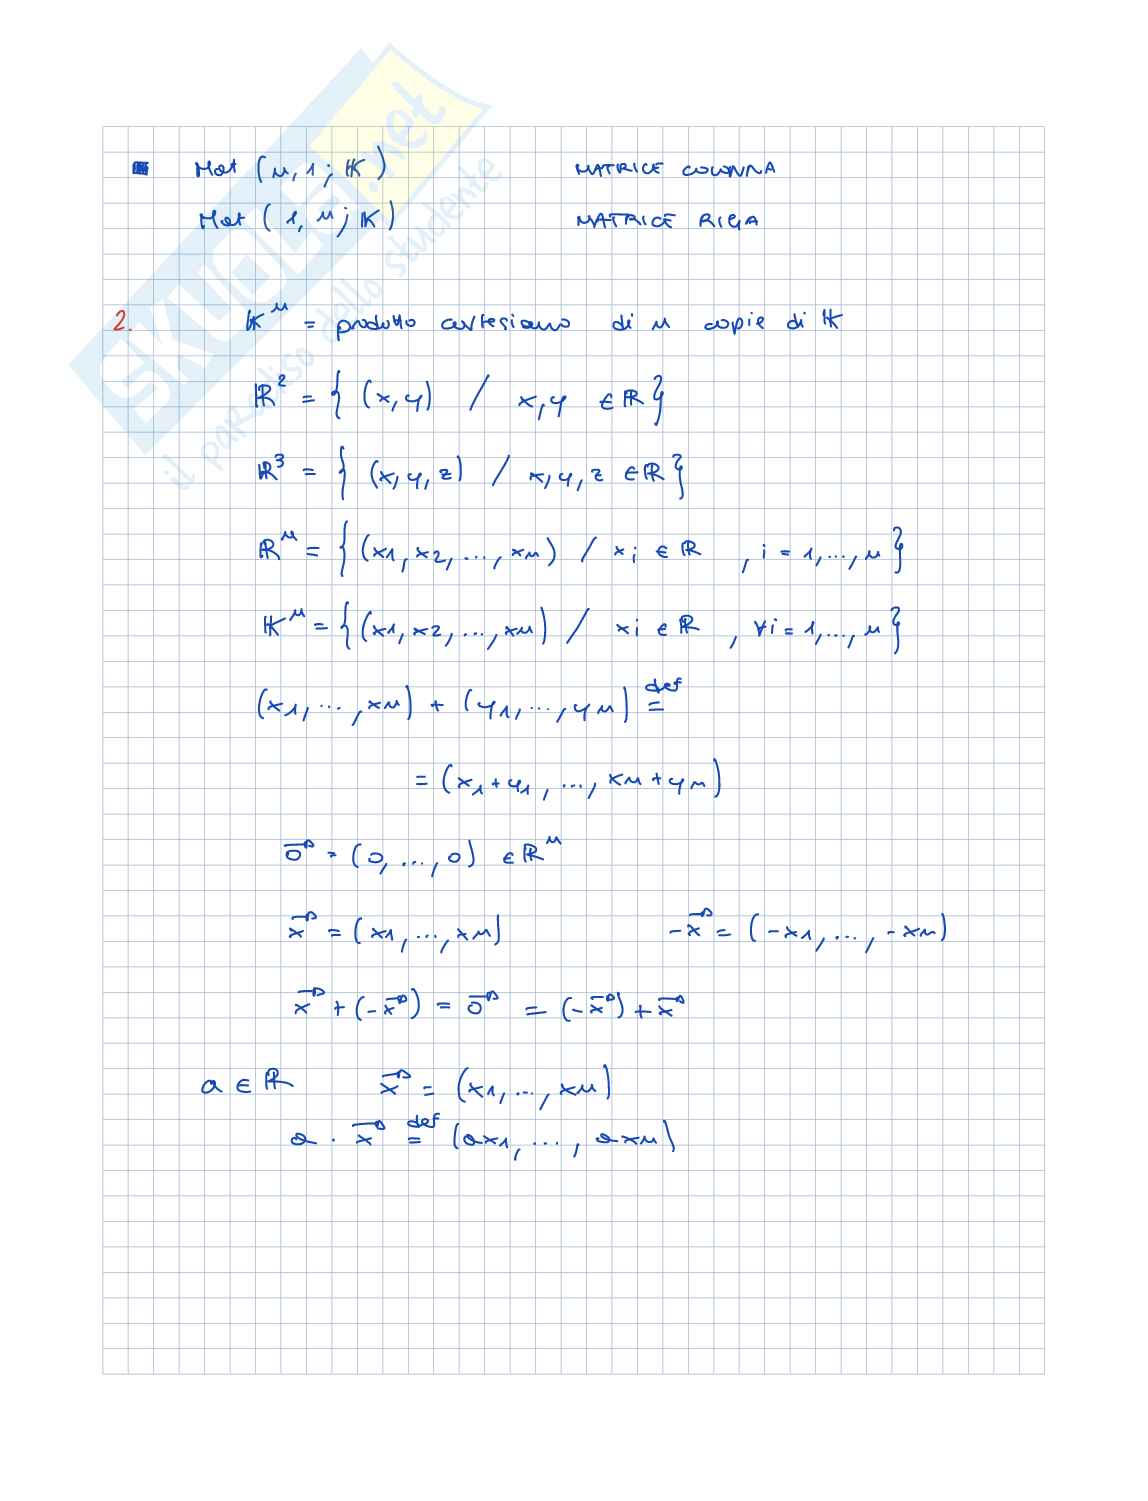 SKUOLA.net
il paradiso dello studente
Mat (n, 1; 𝕂) MATRICE COLONNA
Mat (1, n; 𝕂) MATRICE RIGA
2. 𝕂ⁿ = prodotto cartesiano di n copie di 𝕂
ℝ² = { (x, y) / x, y ∈ ℝ }
ℝ³ = { (x, y, z) / x, y, z ∈ ℝ }
ℝⁿ = { (x1, x2, ..., xn) / xi ∈ ℝ , i = 1, ..., n }
𝕂ⁿ = { (x1, x2, ..., xn) / xi ∈ ℝ , ∀i = 1, ..., n }
(x1, ..., xn) + (y1, ..., yn) def=
= (x1+y1, ..., xn+yn)
0⃗ = (0, ..., 0) ∈ ℝⁿ
x⃗ = (x1, ..., xn) -x⃗ = (-x1, ..., -xn)
x⃗ + (-x⃗) = 0⃗ = (-x⃗) + x⃗
a ∈ ℝ x⃗ = (x1, ..., xn)
a · x⃗ def= (ax1, ..., axn)